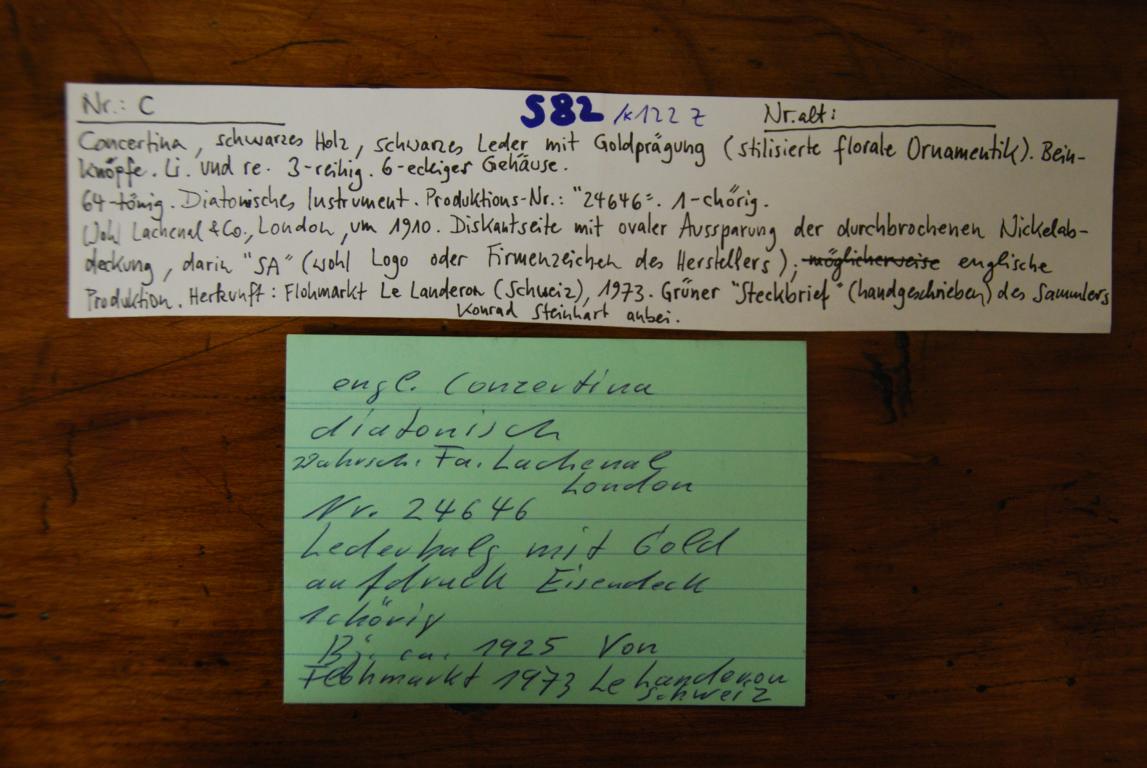 Nr.: C S82 /K122 Z Nr.alt:
Concertina, schwarzes Holz, schwarzes Leder mit Goldprägung (stilisierte florale Ornamentik). Bein-
knöpfe. Li. und re. 3-reihig. 6-eckiges Gehäuse.
64-tönig. Diatonisches Instrument. Produktions-Nr.: "24646". 1-chörig.
Wohl Lachenal & Co., London, um 1910. Diskantseite mit ovaler Aussparung der durchbrochenen Nickelab-
deckung, darin "SA" (wohl Logo oder Firmenzeichen des Herstellers); möglicherweise englische
Produktion. Herkunft: Flohmarkt Le Landeron (Schweiz), 1973. Grüner "Steckbrief" (handgeschrieben) des Sammlers
Konrad Steinhart anbei.
engl. Conzertina
diatonisch
Wahrsch. Fa. Lachenal
London
Nr. 24646
Lederbalg mit Gold
aufdruck Eisendeck
1chörig
Bj. ca. 1925 Von
Flohmarkt 1973 Le Landeron
Schweiz